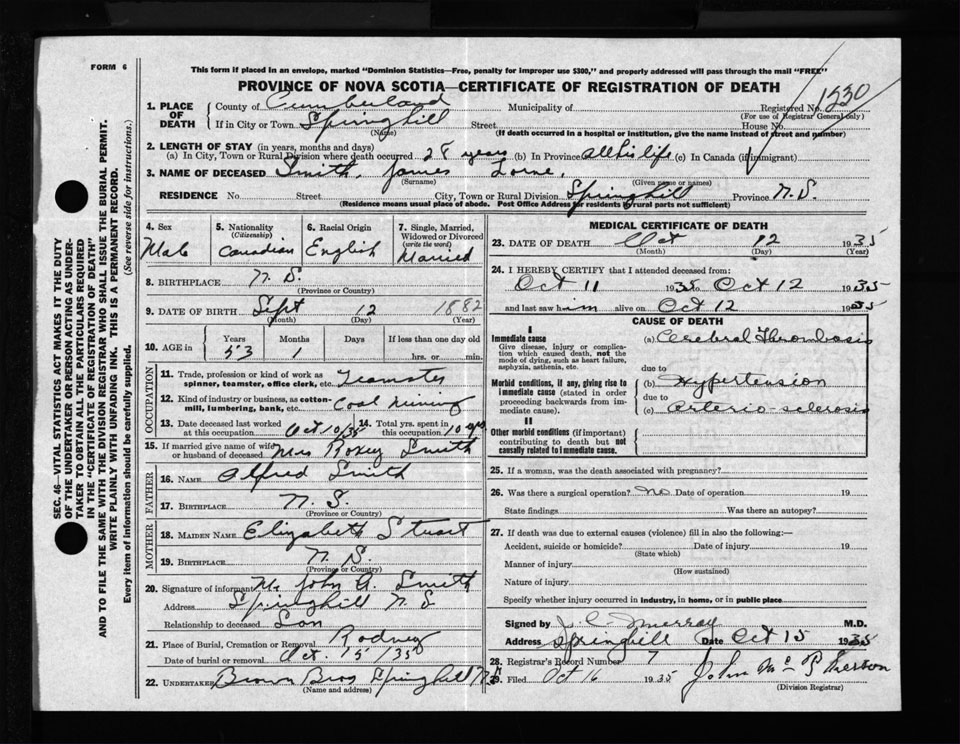 FORM 6
This form if placed in an envelope, marked "Dominion Statistics—Free, penalty for improper use $300," and properly addressed will pass through the mail "FREE"
PROVINCE OF NOVA SCOTIA—CERTIFICATE OF REGISTRATION OF DEATH
1. PLACE OF DEATH County of Cumberland Municipality of Registered No. 1230
(For use of Registrar General only)
If in City or Town Springhill Street House No.
(Name) (If death occurred in a hospital or institution, give the name instead of street and number)
2. LENGTH OF STAY (in years, months and days)
(a) In City, Town or Rural Division where death occurred 28 years (b) In Province all his life (c) In Canada (if immigrant)
3. NAME OF DECEASED Smith, James Lorne,
(Surname) (Given name or names)
RESIDENCE No. Street City, Town or Rural Division Springhill Province N.S.
(Residence means usual place of abode. Post Office Address for residents of rural parts not sufficient)
4. Sex Male
5. Nationality (Citizenship) Canadian
6. Racial Origin English
7. Single, Married, Widowed or Divorced (write the word) Married
8. BIRTHPLACE N.S.
(Province or Country)
9. DATE OF BIRTH Sept 12 1882
(Month) (Day) (Year)
10. AGE in Years 53 Months 1 Days If less than one day old hrs. or min.
OCCUPATION
11. Trade, profession or kind of work as spinner, teamster, office clerk, etc. Teamster
12. Kind of industry or business, as cotton-mill, lumbering, bank, etc. Coal Mining
13. Date deceased last worked at this occupation Oct 10/35
14. Total yrs. spent in this occupation 10 yrs
15. If married give name of wife or husband of deceased Mrs Roxey Smith
FATHER
16. NAME Alfred Smith
17. BIRTHPLACE N.S.
(Province or Country)
MOTHER
18. MAIDEN NAME Elizabeth Stuart
19. BIRTHPLACE N.S.
(Province or Country)
20. Signature of informant Mr. John A. Smith
Address Springhill N.S
Relationship to deceased Son
21. Place of Burial, Cremation or Removal Rodney
Date of burial or removal Oct. 15/35
22. UNDERTAKER Brown Bros Springhill N.S
(Name and address)
MEDICAL CERTIFICATE OF DEATH
23. DATE OF DEATH Oct 12 1935
(Month) (Day) (Year)
24. I HEREBY CERTIFY that I attended deceased from:
Oct 11 1935 to Oct 12 1935
and last saw him alive on Oct 12 1935
CAUSE OF DEATH
I
Immediate cause
Give disease, injury or complication which caused death, not the mode of dying, such as heart failure, asphyxia, asthenia, etc.
(a) Cerebral Thrombosis
due to
Morbid conditions, if any, giving rise to immediate cause (stated in order proceeding backwards from immediate cause).
(b) Hypertension
due to
(c) Arterio-sclerosis
II
Other morbid conditions (if important) contributing to death but not causally related to immediate cause.
25. If a woman, was the death associated with pregnancy?
26. Was there a surgical operation? no Date of operation 19
State findings Was there an autopsy?
27. If death was due to external causes (violence) fill in also the following:—
Accident, suicide or homicide? Date of injury 19
(State which)
Manner of injury
(How sustained)
Nature of injury
Specify whether injury occurred in industry, in home, or in public place
Signed by J. C. Murray M.D.
Address Springhill Date Oct 15 1935
28. Registrar's Record Number 7
29. Filed Oct 16 1935 John McPherson
(Division Registrar)
SEC. 46—VITAL STATISTICS ACT MAKES IT THE DUTY
OF THE UNDERTAKER OR PERSON ACTING AS UNDER-
TAKER TO OBTAIN ALL THE PARTICULARS REQUIRED
IN THE "CERTIFICATE OF REGISTRATION OF DEATH"
AND TO FILE THE SAME WITH THE DIVISION REGISTRAR WHO SHALL ISSUE THE BURIAL PERMIT.
WRITE PLAINLY WITH UNFADING INK. THIS IS A PERMANENT RECORD.
Every item of information should be carefully supplied. (See reverse side for instructions.)